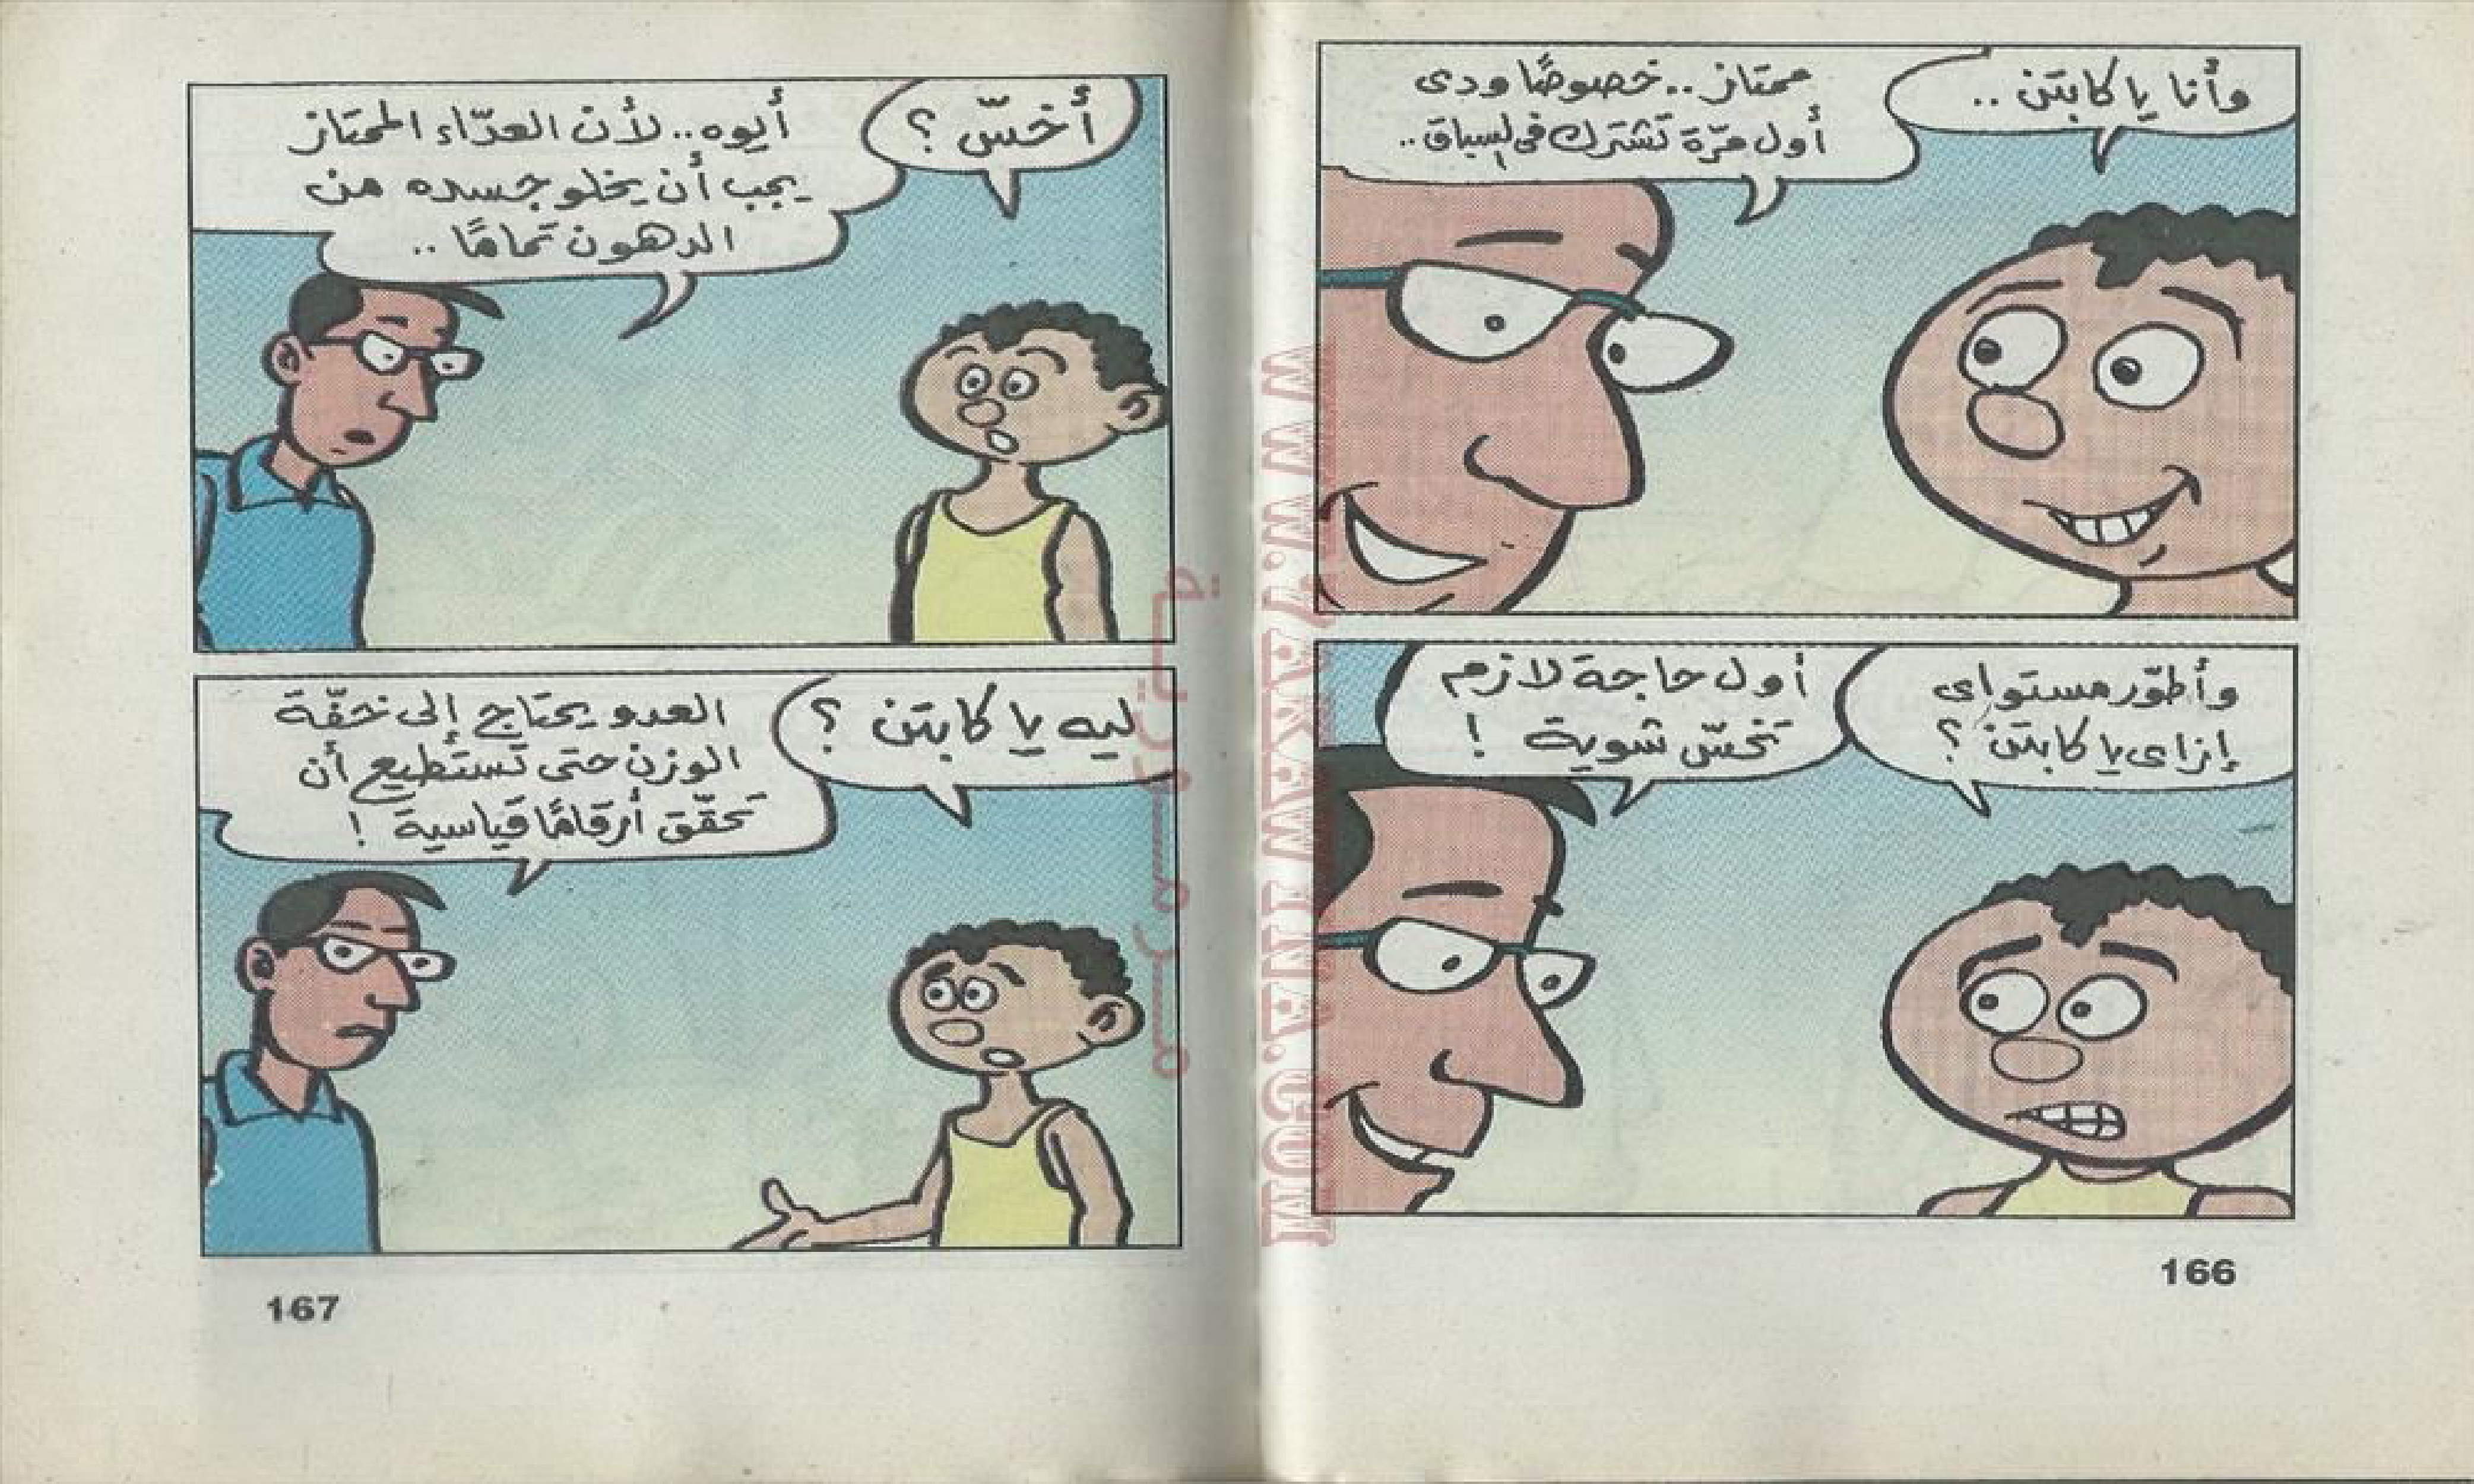 وأنا يا كابتن ..
ممتاز .. خصوصًا ودى
أول مرّة تشترك فى سباق ..
وأطوّر مستواى
إزاى يا كابتن ؟
أول حاجة لازم
تخسّ شوية !
166
أخسّ ؟
أيوه .. لأن العدّاء الممتاز
يجب أن يخلو جسده من
الدهون تمامًا ..
ليه يا كابتن ؟
العدو يحتاج إلى خفّة
الوزن حتى تستطيع أن
تحقّق أرقامًا قياسية !
167